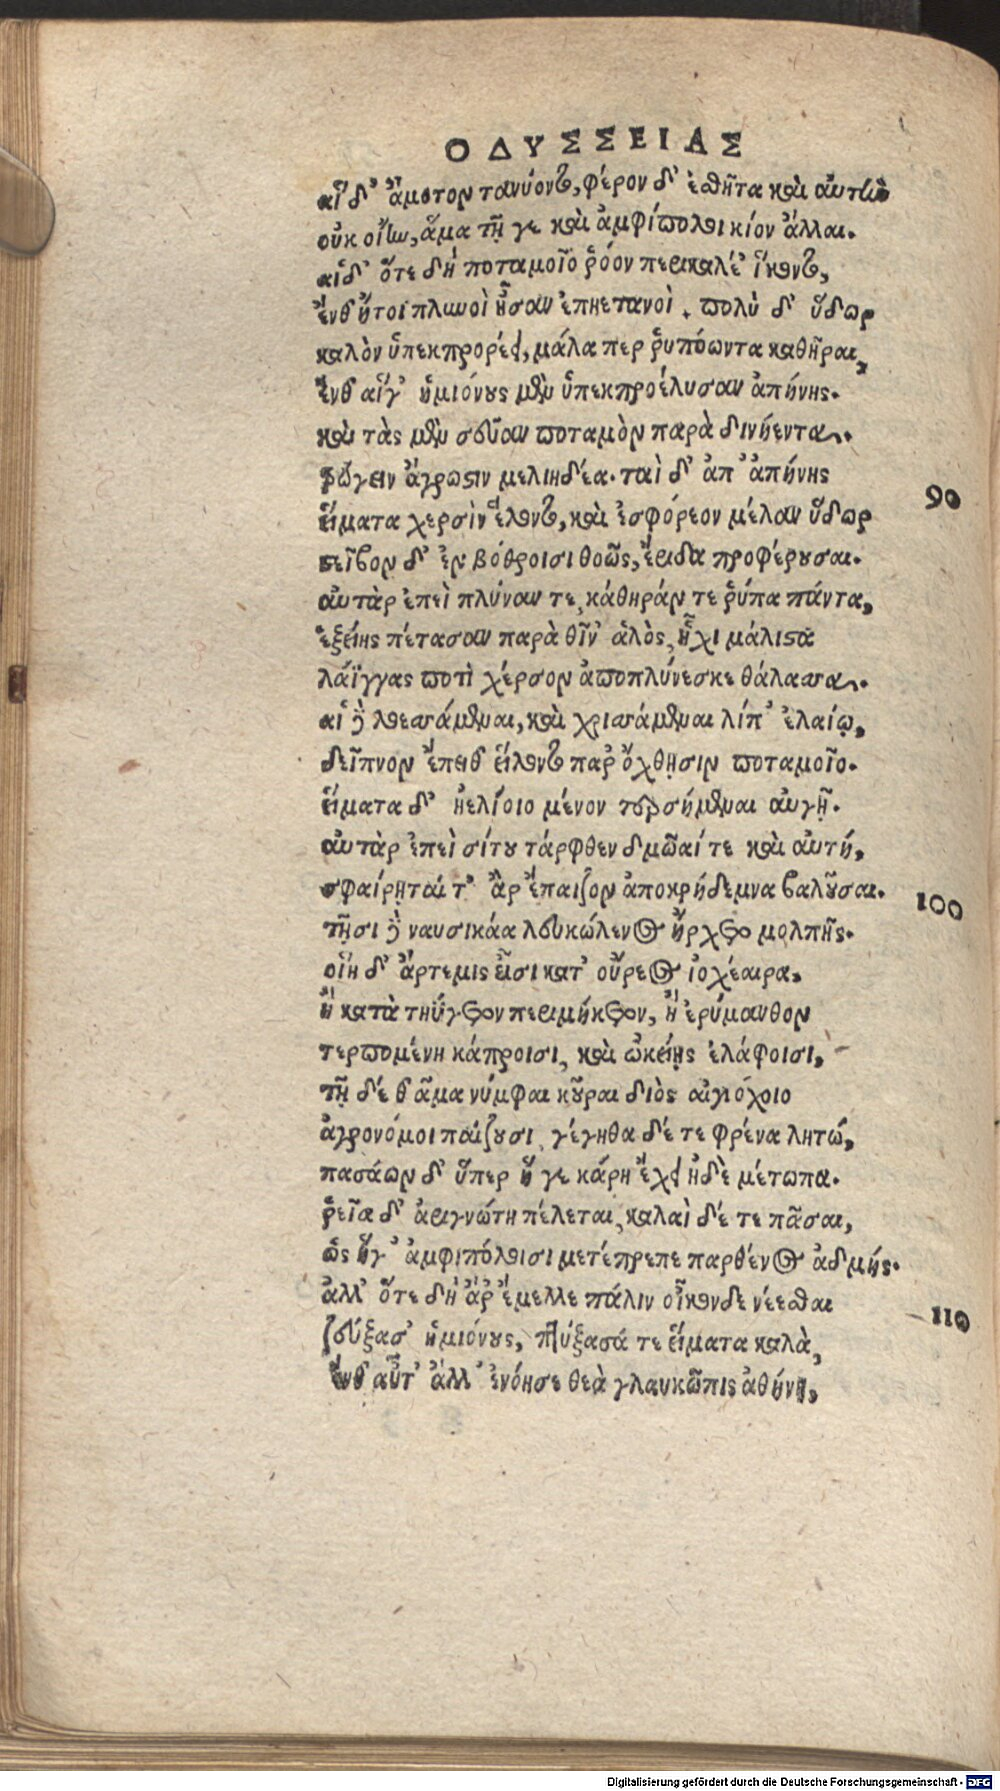 ΟΔΥΣΣΕΙΑΣ
αἵ δ' ἄμοτον τανύοντο, φέρον δ' ἐσθῆτα καὶ αὐτὴν
οὐκ οἴην, ἅμα τῇ γε καὶ ἀμφίπολοι κίον ἄλλαι.
αἵ δ' ὅτε δὴ ποταμοῖο ῥόον περικαλέ' ἵκοντο,
ἔνθ' ἤτοι πλυνοὶ ἦσαν ἐπηετανοὶ. πολὺ δ' ὕδωρ
καλὸν ὑπεκπρορέει, μάλα περ ῥυπόωντα καθῆραι,
ἔνθ' αἵγ' ἡμιόνους μὲν ὑπεκπροέλυσαν ἀπήνης.
καὶ τὰς μὲν σεῦαν ποταμὸν παρὰ δινήεντα.
τρώγειν ἄγρωστιν μελιηδέα. ταὶ δ' ἀπ' ἀπήνης
90
εἵματα χερσὶν ἕλοντο, καὶ ἐσφόρεον μέλαν ὕδωρ
στεῖβον δ' ἐν βόθροισι θοῶς, ἔριδα προφέρουσαι.
αὐτὰρ ἐπεὶ πλύναν τε, κάθηράν τε ῥύπα πάντα,
ἑξείης πέτασαν παρὰ θῖν' ἁλὸς, ἧχι μάλιστα
λάϊγγας ποτὶ χέρσον ἀποπλύνεσκε θάλασσα.
αἱ δὲ λοεσσάμεναι, καὶ χρισσάμεναι λίπ' ἐλαίῳ,
δεῖπνον ἔπειθ' εἵλοντο παρ' ὄχθῃσιν ποταμοῖο.
εἵματα δ' ἠελίοιο μένον τερσήμεναι αὐγῇ.
αὐτὰρ ἐπεὶ σίτου τάρφθεν δμῶαί τε καὶ αὐτή,
σφαίρῃ ταί τ' ἂρ ἔπαιζον ἀπὸ κρήδεμνα βαλοῦσαι.
100
τῇσι δὲ ναυσικάα λευκώλενος ἤρχετο μολπῆς.
οἵη δ' ἄρτεμις εἶσι κατ' οὔρεος ἰοχέαιρα,
ἢ κατὰ τηΰγετον περιμήκετον, ἢ ἐρύμανθον
τερπομένη κάπροισι, καὶ ὠκείῃς ἐλάφοισι,
τῇ δέ θ' ἅμα νύμφαι κοῦραι διὸς αἰγιόχοιο
ἀγρονόμοι παίζουσι, γέγηθα δέ τε φρένα λητώ,
πασάων δ' ὕπερ ἥ γε κάρη ἔχει ἠδὲ μέτωπα.
ῥεῖα δ' ἀριγνώτη πέλεται, καλαὶ δέ τε πᾶσαι,
ὣς ἥγ' ἀμφιπόλοισι μετέπρεπε παρθένος ἀδμής.
ἀλλ' ὅτε δὴ ἄρ' ἔμελλε πάλιν οἶκονδε νέεσθαι
110
ζεύξασ' ἡμιόνους, πτύξασά τε εἵματα καλὰ,
ἔνθ' αὖτ' ἄλλ' ἐνόησε θεὰ γλαυκῶπις ἀθήνη,
Digitalisierung gefördert durch die Deutsche Forschungsgemeinschaft - DFG